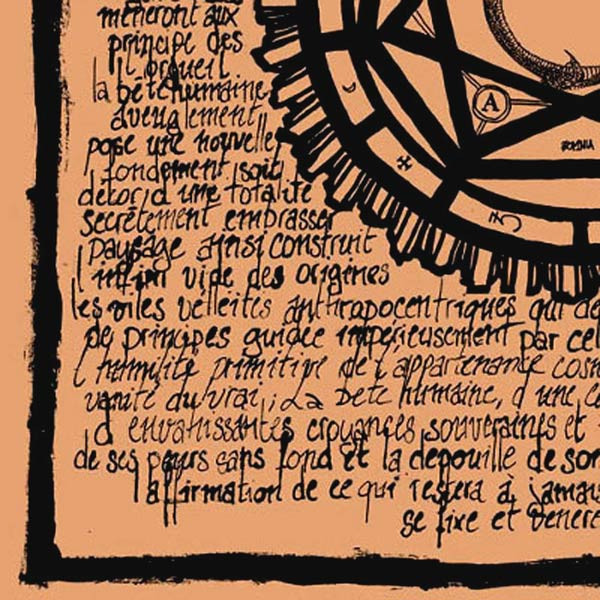 mèneront aux
principe des
l'orgueil
la bête humaine
aveuglement
pose une nouvelle
fondement soit
d'une totalité
secrètement embrasser
paysage ainsi construit
l'infini vide des origines
les viles velléités anthropocentriques qui de
de principes guidée impérieusement par cel
l'humilité primitive de l'appartenance cosm
vanité du vrai, La bête humaine, d'une
d'envahissantes croyances souveraines et
de ses peurs sans fond et la dépouille de son
l'affirmation de ce qui restera à jamais
se fixe et
A